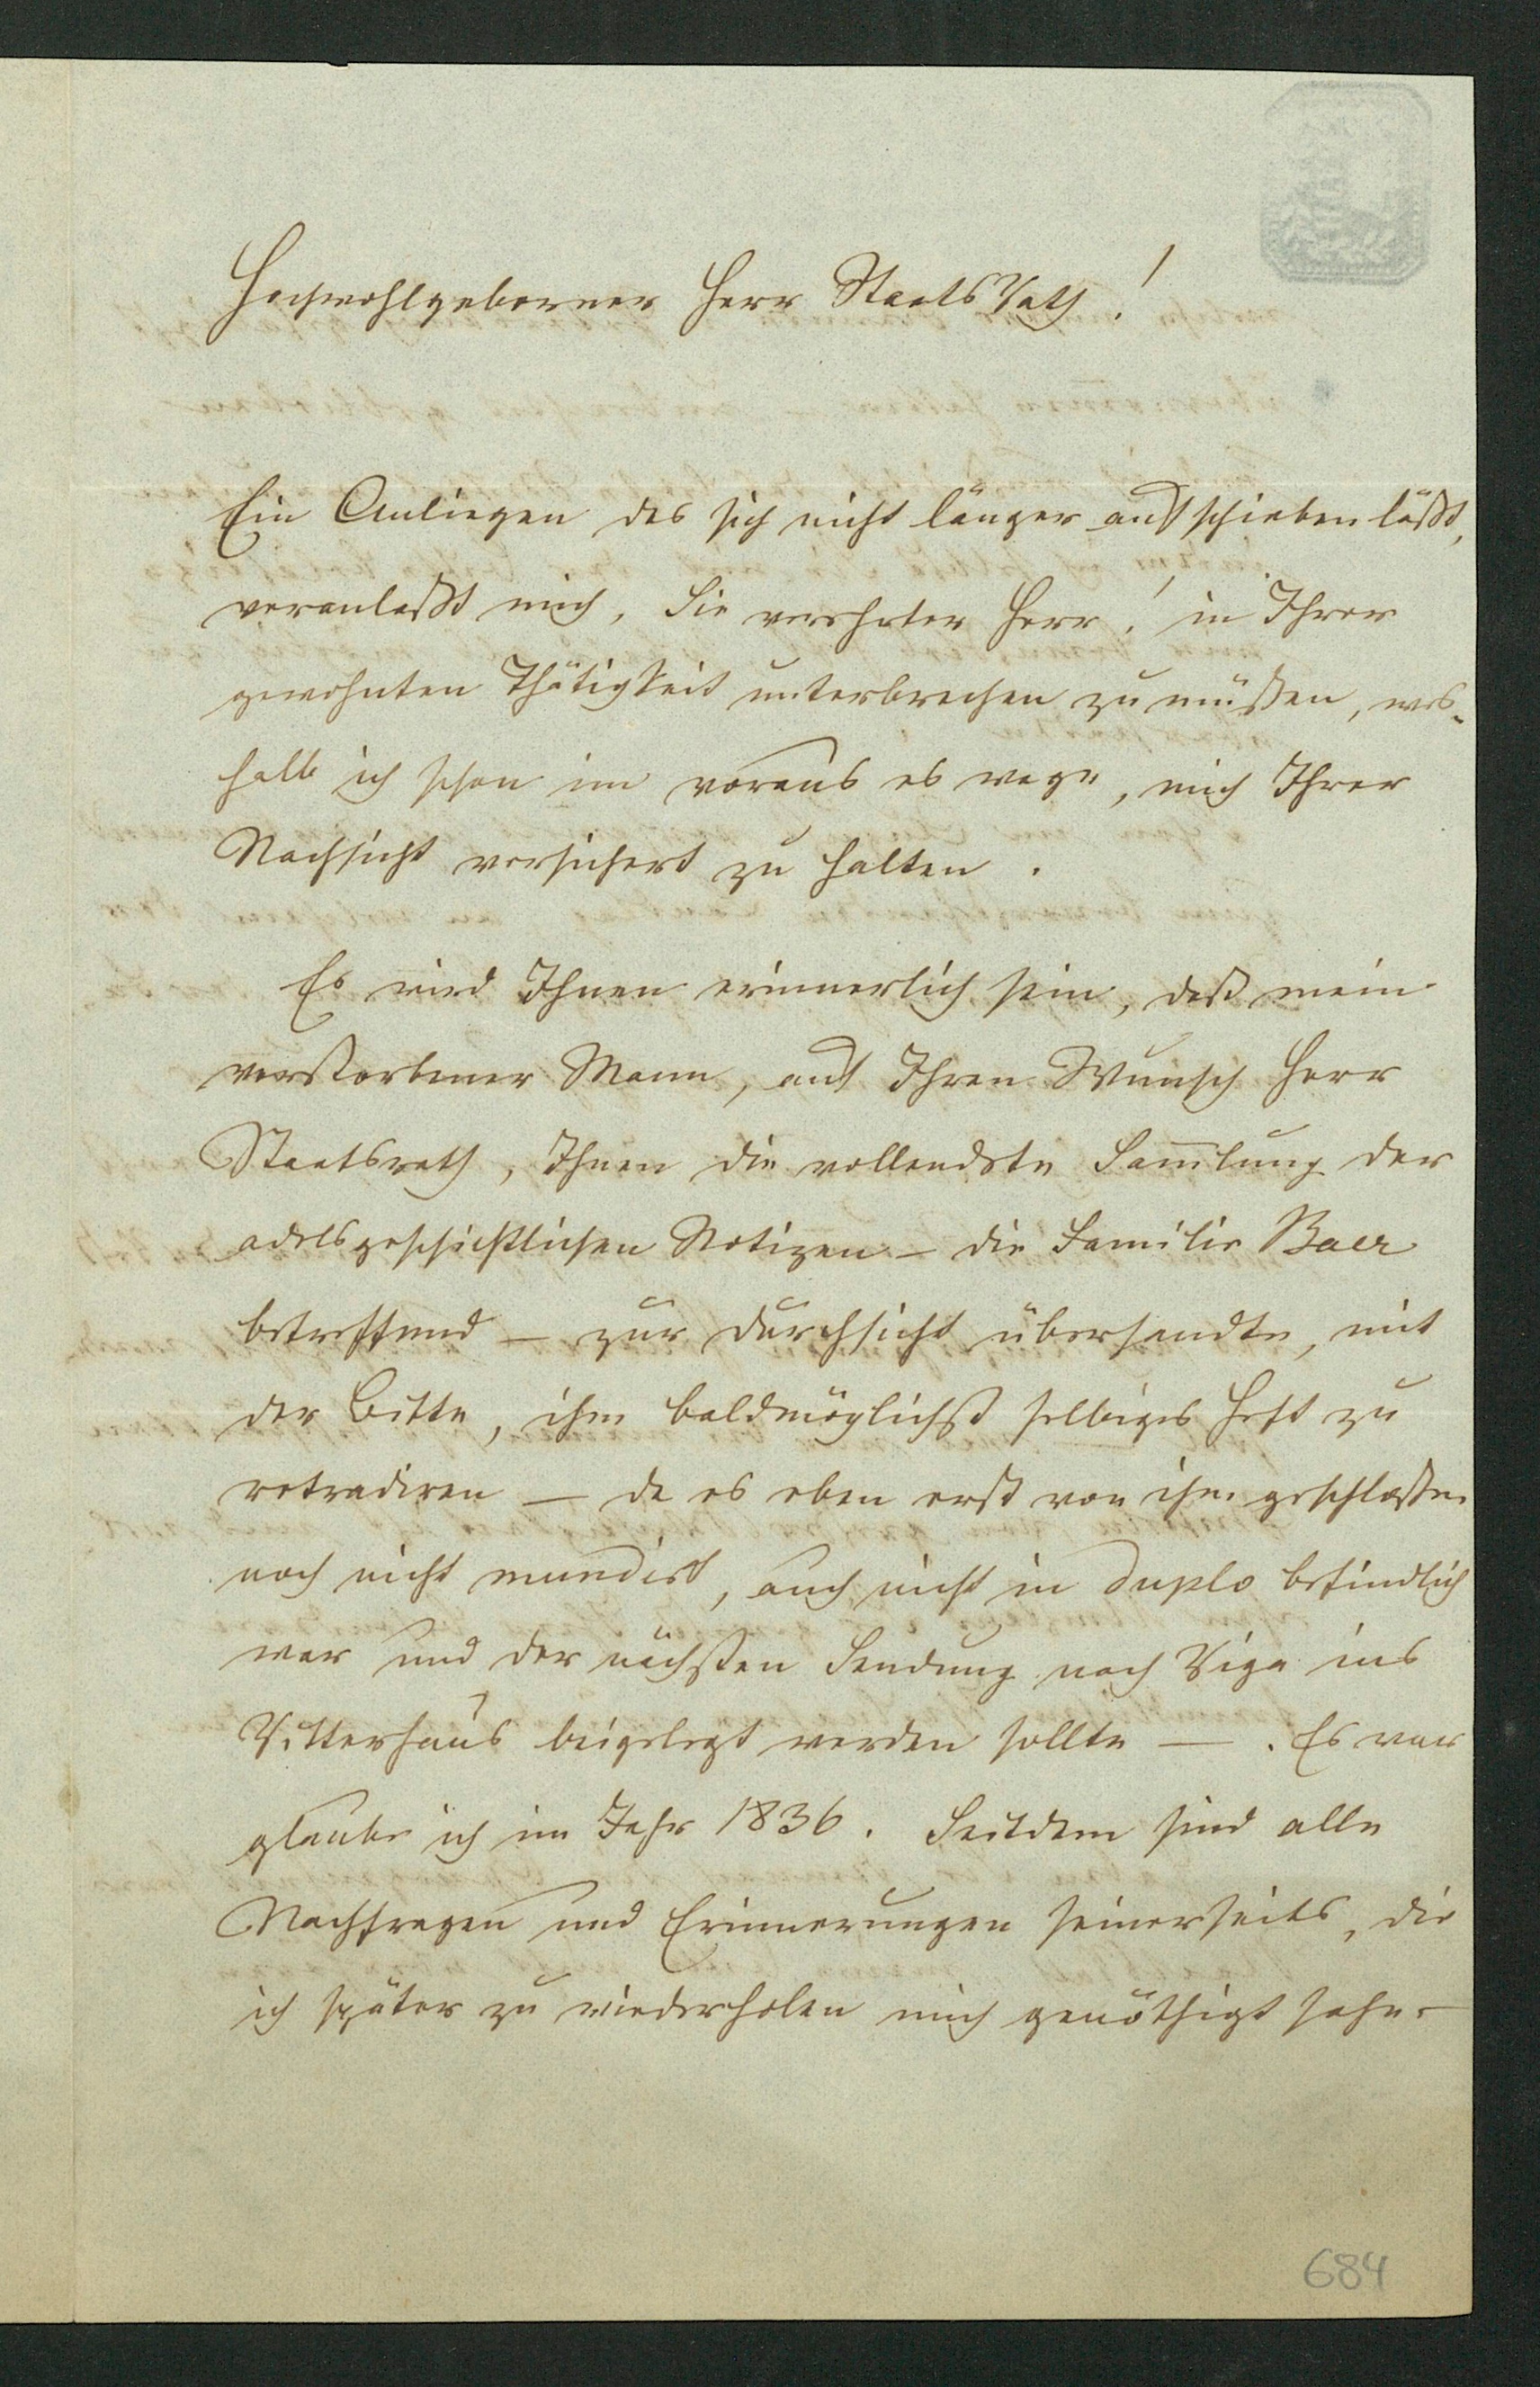 Hochwohlgeborner Herr StaatsRath!
Ein Anliegen das sich nicht länger aufschieben läßt,
veranlaßt mich, Sie verehrter Herr! in Ihrer
gewohnten Thätigkeit unterbrechen zu müßen, wes-
halb ich schon im voraus es wage, mich Ihrer
Nachsicht versichert zu halten.
Es wird Ihnen erinnerlich sein, daß mein
verstorbener Mann, auf Ihren Wunsch Herr
Staatsrath, Ihnen die vollendete Sam̄lung der
adelsgeschichtlichen Notizen – die Familie Baer
betreffend – zur Durchsicht übersandte, mit
der Bitte, ihm baldmöglichst selbiges Heft zu
retradiren – da es eben erst von ihm geschloßen
noch nicht mundirt, auch nicht in duplo befindlich
war und der nächsten Sendung nach Riga ins
Ritterhaus beigelegt werden sollte –. Es war
glaube ich im Jahr 1836. Seitdem sind alle
Nachfragen und Erinnerungen seinerseits, die
ich später zu wiederholen mich genöthigt sahe –
684